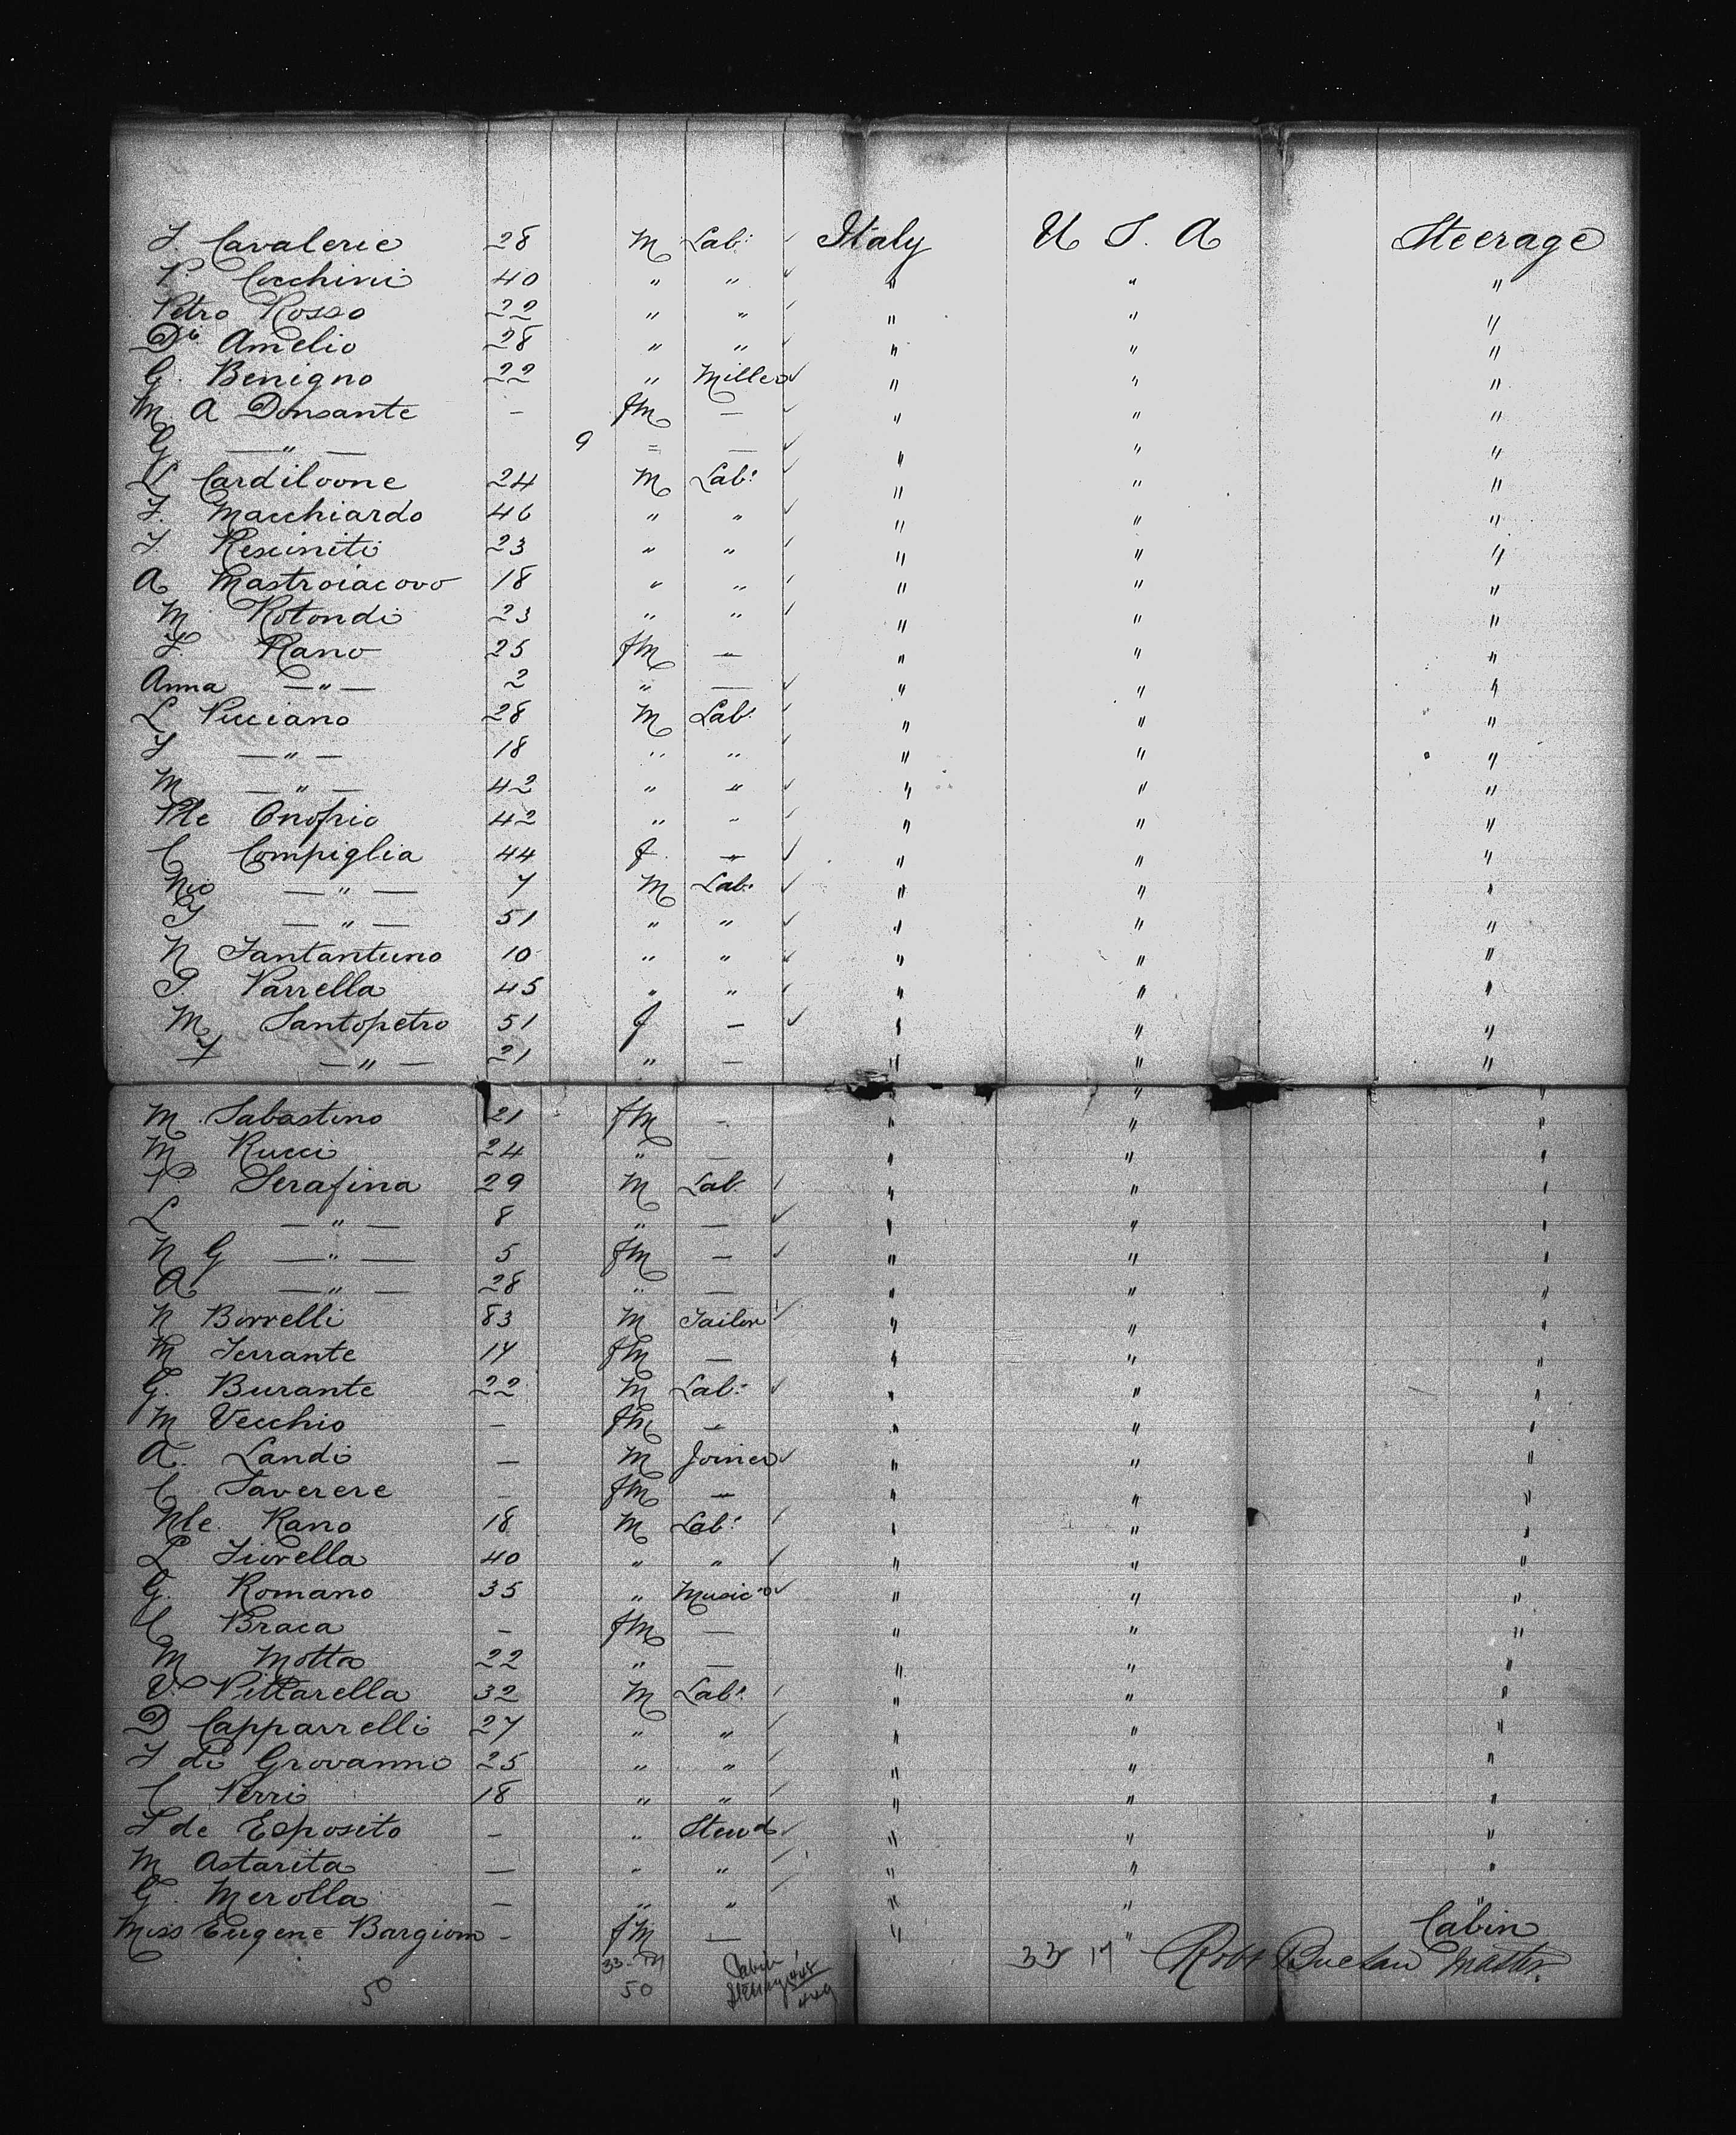 F. Cavalerie 28 M Lab: ✓ Italy U. S. A Steerage
P. Cocchini 40 " " ✓ " " "
Petro Rosso 22 " " ✓ " " "
Di Amelio 28 " " ✓ " " "
G. Benigno 22 " Miller ✓ " " "
M. A Donsante — fM — ✓ " " "
G. —"— 9 = — ✓ " " "
L Cardiloone 24 M Lab: ✓ " " "
F. Macchiardo 46 " " ✓ " " "
F. Resciniti 23 " " ✓ " " "
A Mastroiacovo 18 " " ✓ " " "
M. Rotondi 23 " " ✓ " " "
F Rano 25 fM — " " "
Anna —"— 2 " — ✓ " " "
L Picciano 28 M Lab: ✓ " " "
F —"— 18 " " ✓ " " "
M —"— 42 " " ✓ " " "
Ple Onofrio 42 " " ✓ " " "
C Compiglia 44 f. — ✓ " " "
Nio —"— 7 M Lab: ✓ " " "
G —"— 51 " " ✓ " " "
N Fantantuno 10 " " ✓ " " "
G Parrella 45 " " ✓ " " "
M Santopetro 51 f — ✓ " " "
—"— 21 " — " " "
M. Sabastino 21 fM — " " "
M Rucci 24 " — " " "
P Serafina 29 M Lab. ✓ " " "
L —"— 8 " — ✓ " " "
N G —"— 5 fM — ✓ " " "
A —"— 28 " — " " "
N Borrelli 83 M Tailor ✓ " " "
M Ferrante 14 fM — " " "
G. Burante 22 M Lab: ✓ " " "
M Vecchio — fM — " " "
A. Landi — M Joiner ✓ " " "
C Saverere — fM — " " "
Nle. Rano 18 M Lab: ✓ " " "
L Fiorella 40 " " ✓ " " "
G. Romano 35 " Music'n ✓ " " "
C Braca — fM — " " "
M Motta 22 " — " " "
V. Pittarella 32 M Lab: ✓ " " "
D Capparrelli 27 " " ✓ " " "
F di Grovanno 25 " " ✓ " " "
C Perri 18 " " ✓ " " "
F de Esposito — " Stewd ✓ " " "
M Astarita — " " ✓ " " "
G. Merolla — " " ✓ " " "
Miss Eugene Bargiom — fM — " " Cabin
33 17 Robt Buchan Master.
50 50 449